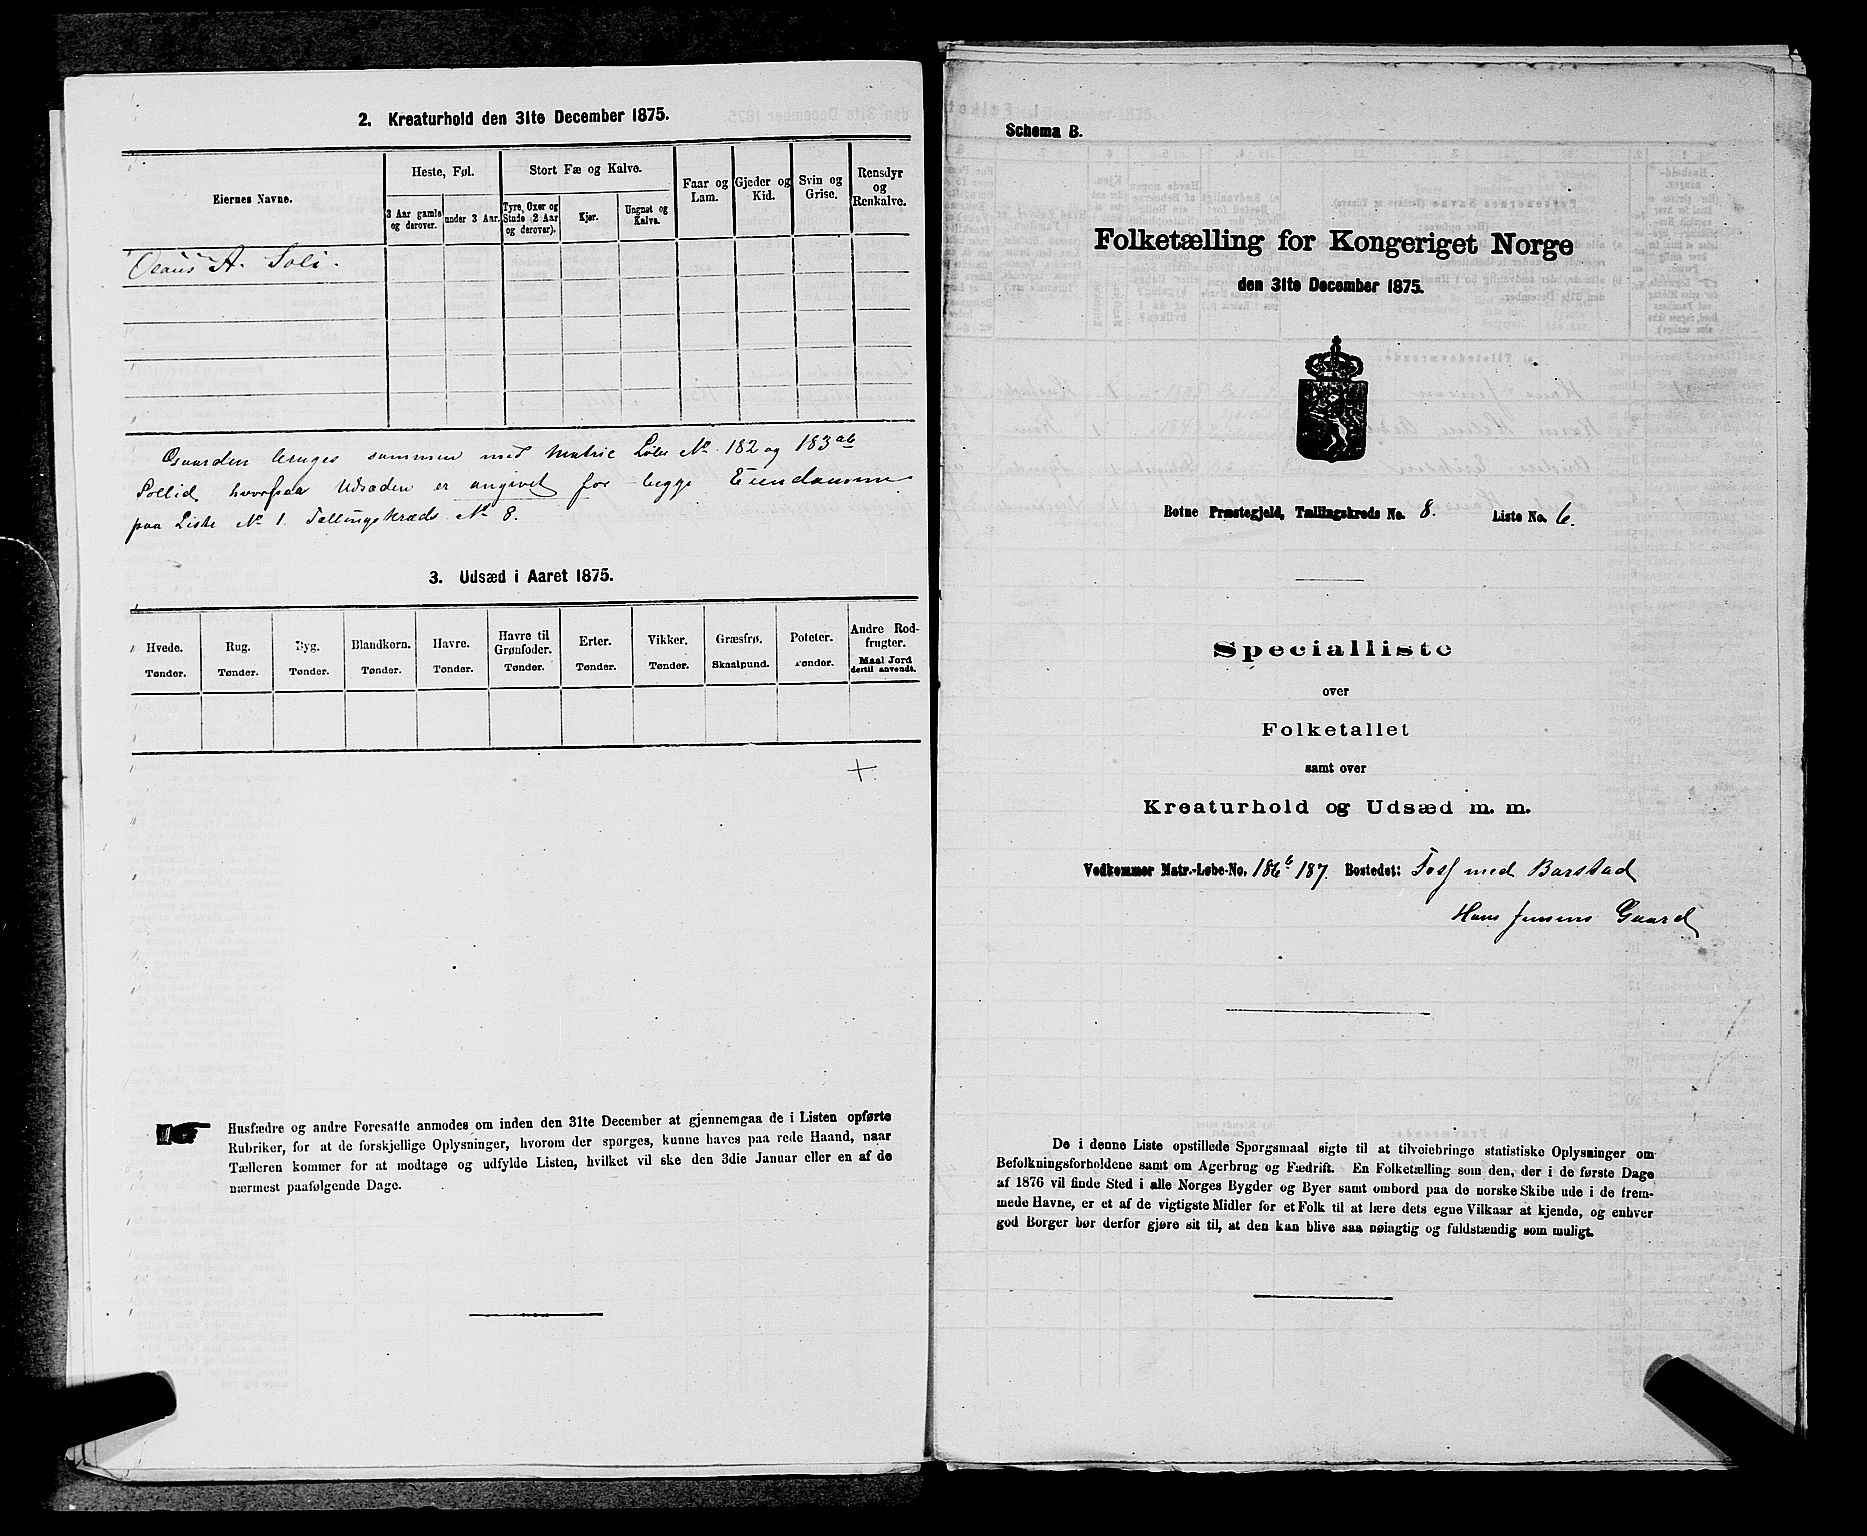 2. Kreaturhold den 31te December 1875.
Eiernes Navne.
Heste, Føl.
3 Aar gamle og derover.
under 3 Aar.
Stort Fæ og Kalve.
Tyre, Oxer og Stude (2 Aar og derover).
Kjør.
Ungnøt og Kalve.
Faar og Lam.
Gjeder og Kid.
Svin og Grise.
Rensdyr og Renkalve.
Olaus A. Soli.
Gaarden bruges sammen med Matric Löbe No. 182 og 183 ab
Sollid hvorpaa Udsæden er angivet for begge Eiendomme
paa Liste No 1. Tællingskreds No 8.
3. Udsæd i Aaret 1875.
Hvede. Tønder.
Rug. Tønder.
Byg. Tønder.
Blandkorn. Tønder.
Havre. Tønder.
Havre til Grønfoder. Tønder.
Erter. Tønder.
Vikker. Tønder.
Græsfrø. Skaalpund.
Poteter. Tønder.
Andre Rodfrugter. Maal Jord dertil anvendt.
Husfædre og andre Foresatte anmodes om inden den 31te December at gjennemgaa de i Listen opførte
Rubriker, for at de forskjellige Oplysninger, hvorom der spørges, kunne haves paa rede Haand, naar
Tælleren kommer for at modtage og udfylde Listen, hvilket vil ske den 3die Januar eller en af de
nærmest paafølgende Dage.
Schema B.
Folketælling for Kongeriget Norge
den 31te December 1875.
Botne Præstegjeld, Tællingskreds No. 8. Liste No. 6.
Specialliste
over
Folketallet
samt over
Kreaturhold og Udsæd m. m.
Vedkommer Matr.-Løbe-No. 186 b 187. Bostedet: Tosf med Barstad
Hans Jensens Gaard
De i denne Liste opstillede Spørgsmaal sigte til at tilveiebringe statistiske Oplysninger om
Befolkningsforholdene samt om Agerbrug og Fædrift. En Folketælling som den, der i de første Dage
af 1876 vil finde Sted i alle Norges Bygder og Byer samt ombord paa de norske Skibe ude i de frem-
mede Havne, er et af de vigtigste Midler for et Folk til at lære dets egne Vilkaar at kjende, og enhver
god Borger bør derfor gjøre sit til, at den kan blive saa nøiagtig og fuldstændig som muligt.